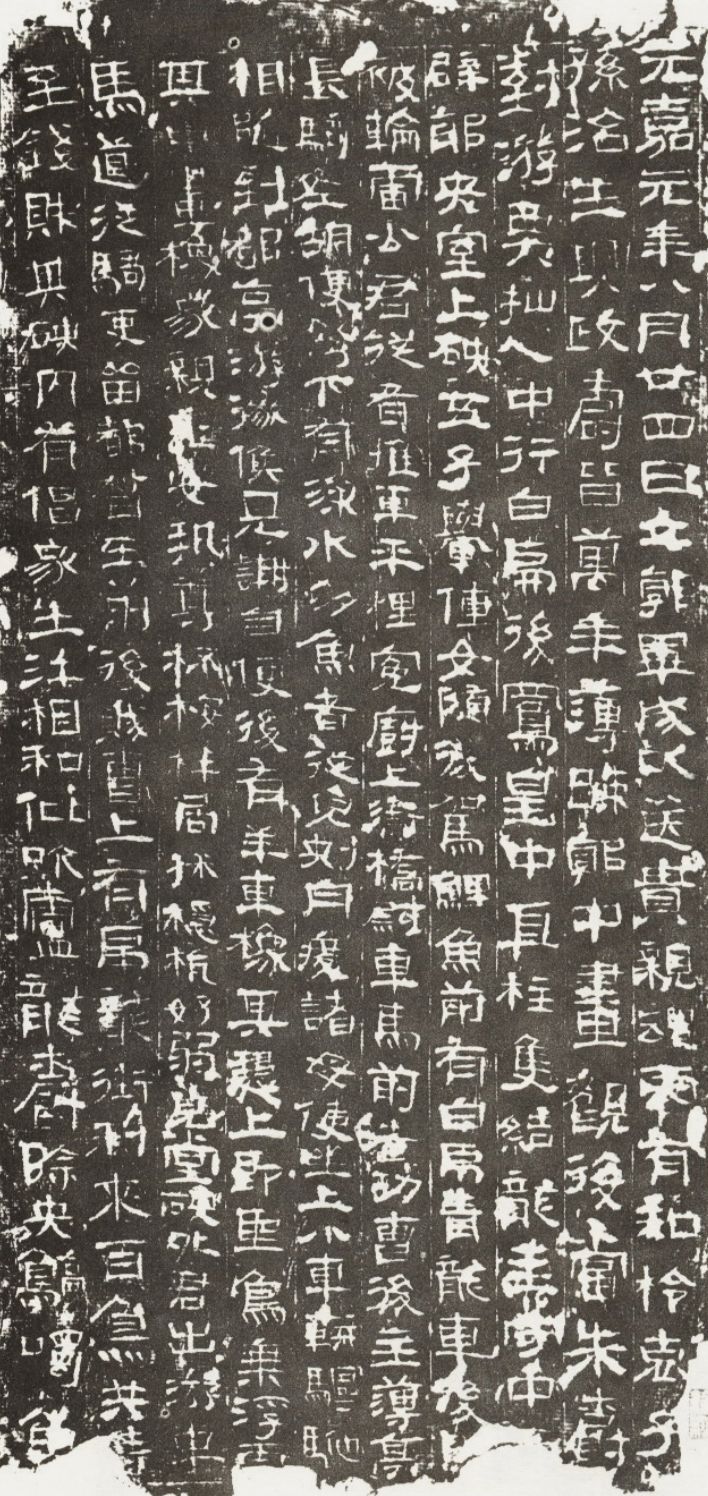 元嘉元年八月廿四日立郭畢成以送貴親魂零有知柃哀子
孫治生興政壽皆萬年薄踈郭中畫觀後當朱爵
對游人中行白虎後鳳皇中直柱隻結龍主守中
辟邪央室上硖五子轝僮女隨後駕鯉魚前有白虎青龍車後
被輪雷公君從者推車平梩冤厨上衛橋尉車馬前者功曹後主簿亭
長騎佐胡使弩下有深水多魚者從兒刺舟渡諸母使坐上小車軿驅馳
相隨到都亭游徼候見謝自便後有羊車橡其槥上即聖鳥乘浮雲
其中畫像家親玉女執尊杯桉柈局抹穩杭好弱皃堂硖外君出游車
馬道從騎吏留都督在前後賊曹上有虎龍銜利來百鳥共持
至錢財其硖内有倡家生汙相和仳吹廬龍爵除央鶴噣魚